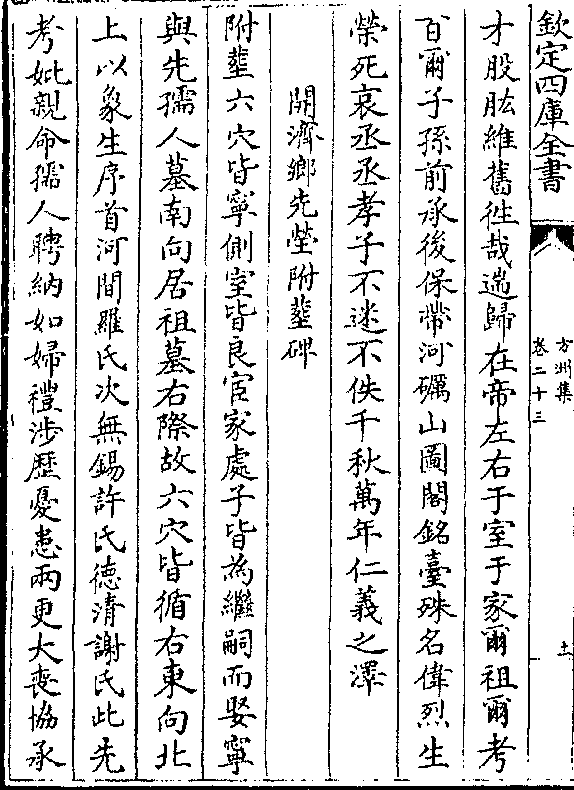 欽定四庫全書
方洲集
卷二十三
十一
才股肱維舊徃哉遄歸在帝左右于室于家爾祖爾考
百爾子孫前承後保帶河礪山圖閣銘臺殊名偉烈生
榮死哀丞丞孝子不迷不佚千秋萬年仁義之澤
開濟鄉先塋附塟碑
附塟六穴皆寧側室皆良宦家處子皆為繼嗣而娶寧
與先孺人墓南向居祖墓右際故六穴皆循右東向北
上以象生序首河間羅氏次無錫許氏德清謝氏此先
考妣親命孺人聘納如婦禮涉歷憂患兩更大喪協承